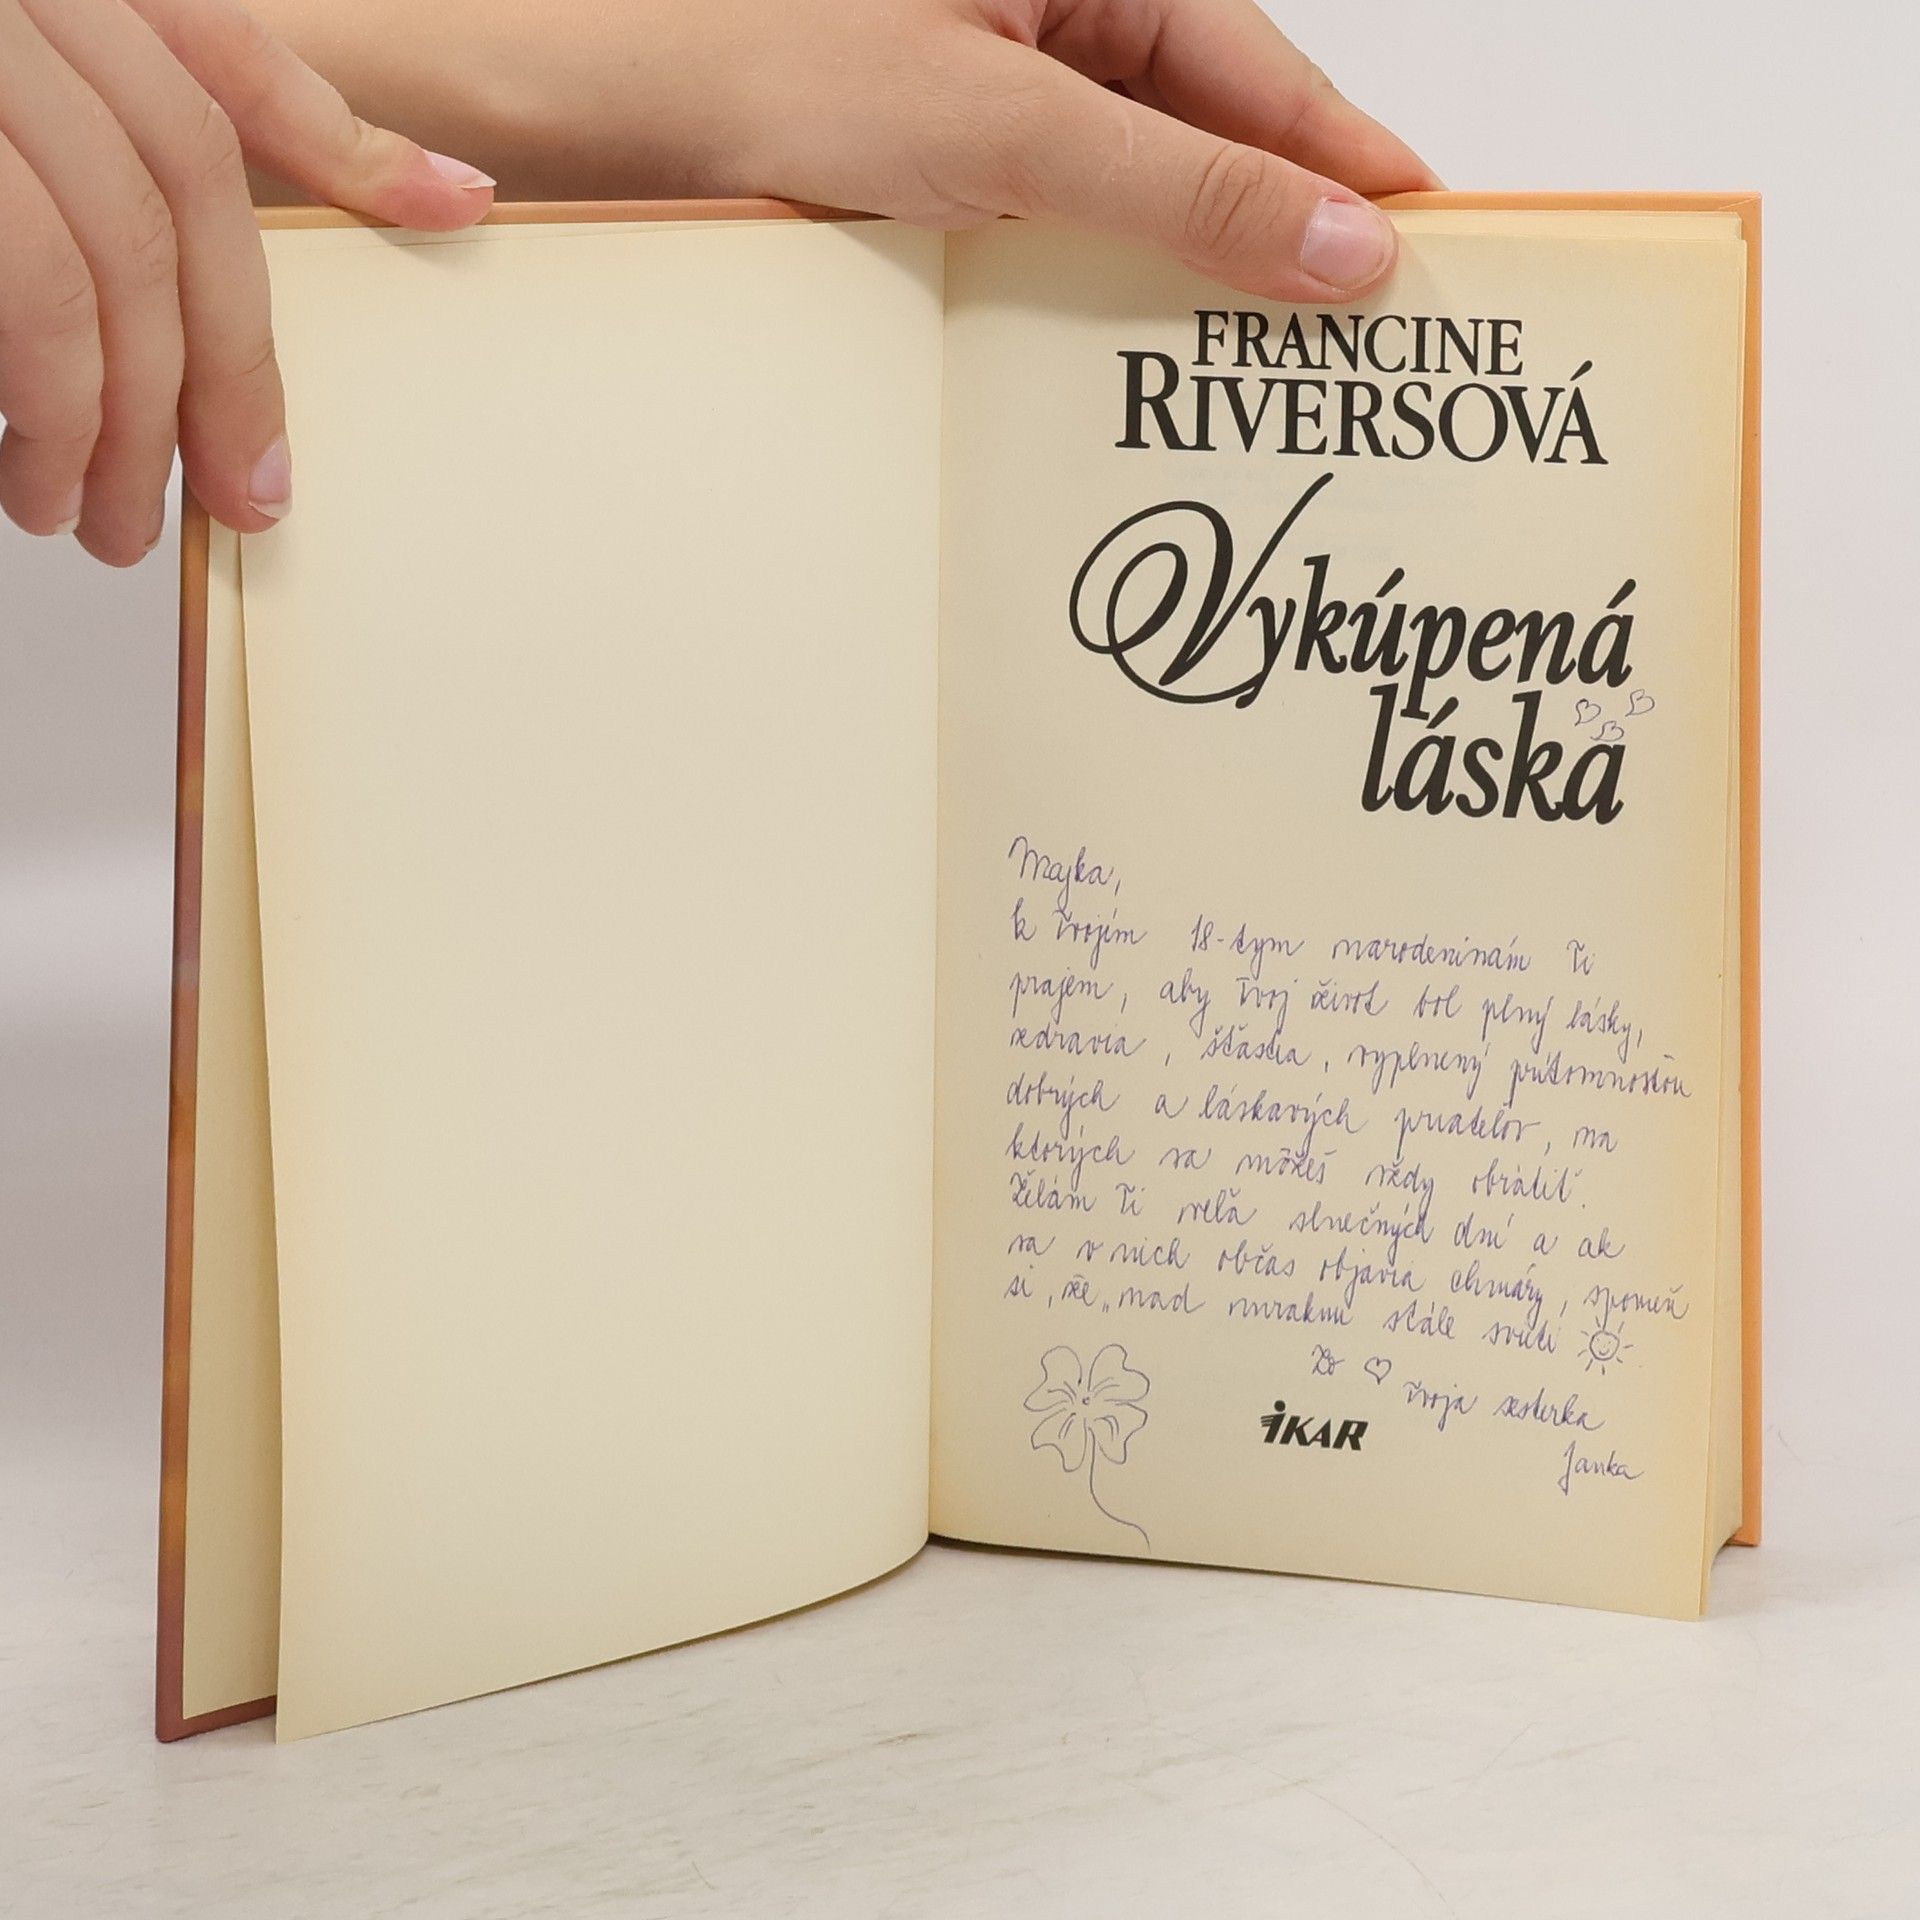 FRANCINE
RIVERSOVÁ
Vykúpená
láska
Majka,
k Tvojím 18-tym narodeninám Ti
prajem, aby Tvoj život bol plný lásky,
zdravia, šťastia, vyplnený prítomnosťou
dobrých a láskavých priateľov, na
ktorých sa môžeš vždy obrátiť.
Želám Ti veľa slnečných dní a ak
sa v nich občas objavia chmáry, spomeň
si, že „nad mrakmi stále svieti
Zo
Tvoja sesterka
Janka
IKAR